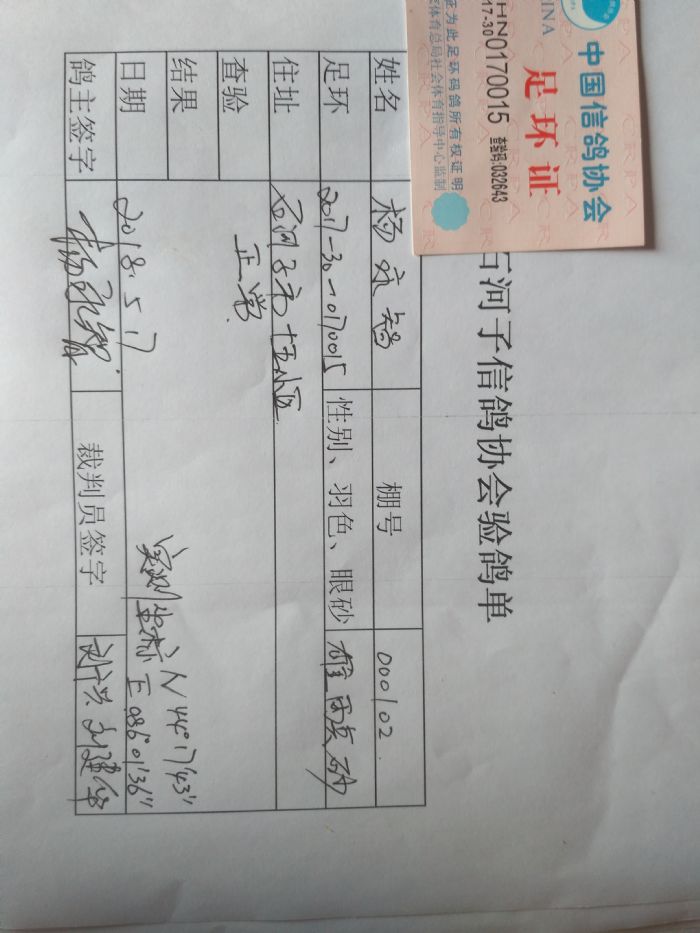 中国信鸽协会
足环证
CHINA
HN0170015
17-30
查验码:032643
证为此足环码鸽所有权证明
家体育总局社会体育指导中心监制
石河子信鸽协会验鸽单
姓名 杨永智 棚号 000102
足环 2017-30-0170015 性别、羽色、眼砂 雄 雨点 砂
住址 石河子市十五小区
查验 正常
结果
日期 2018.5.17 实测坐标 N 44°17′43″
E 086°01′36″
鸽主签字 杨永智 裁判员签字